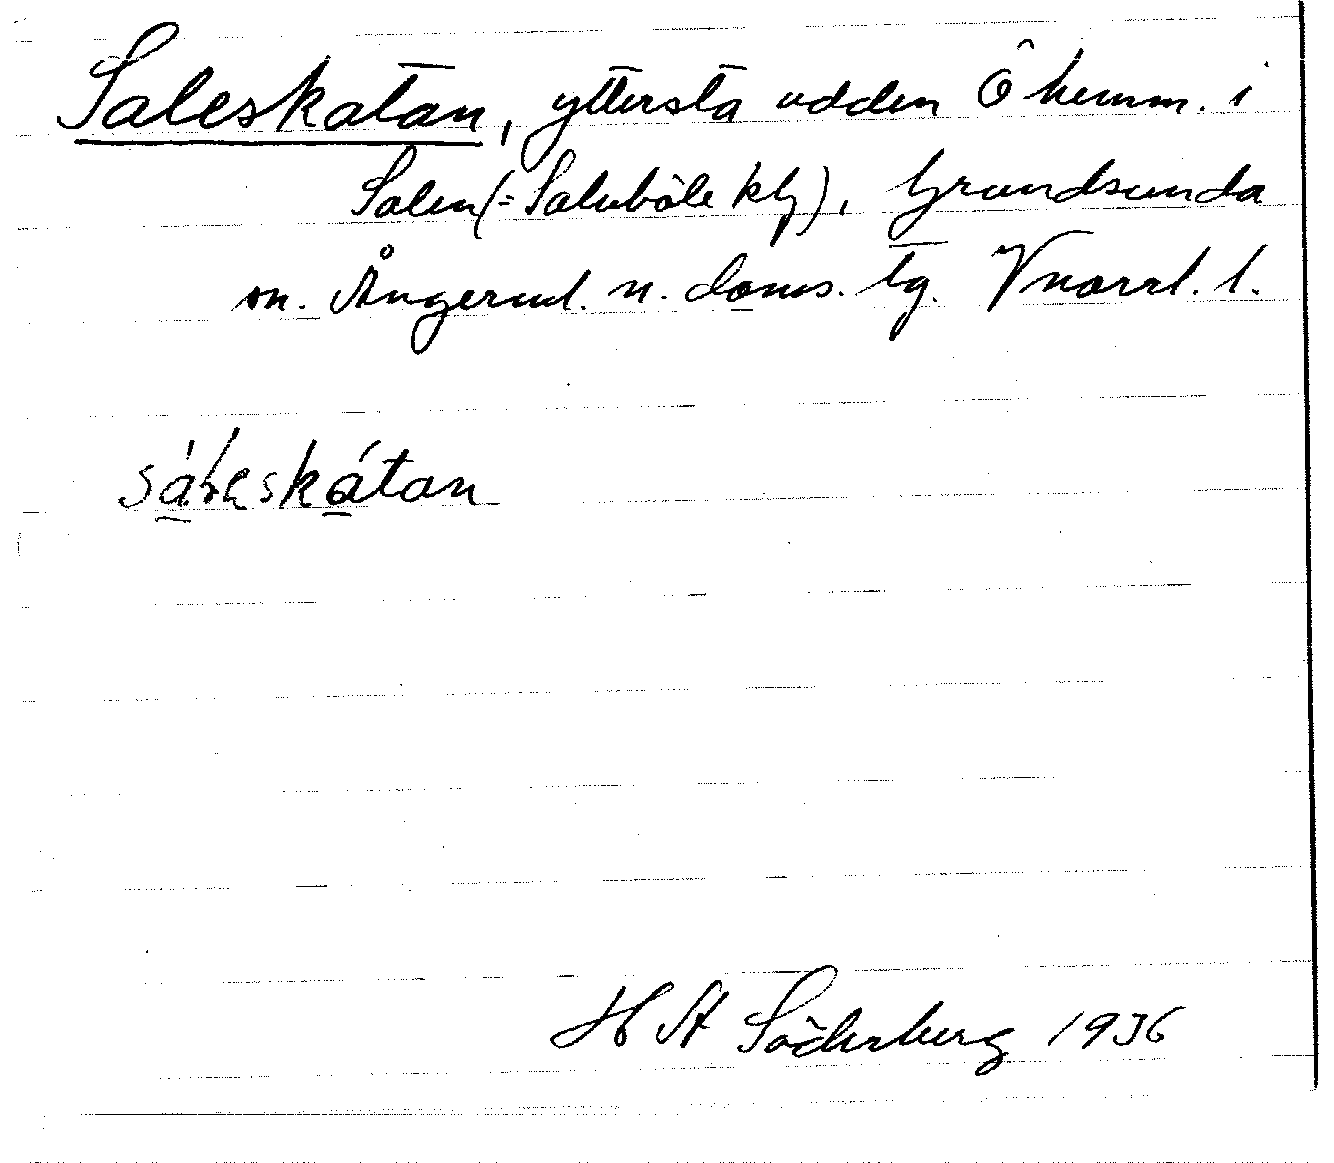 Saleskatan, yttersta udden Ö hemm. i
Salen (= Saluböle kby), Grundsunda
sn. Ångerml. n. doms. tg. Vnorrl. l.
sáleskátan
H St Söderberg 1936